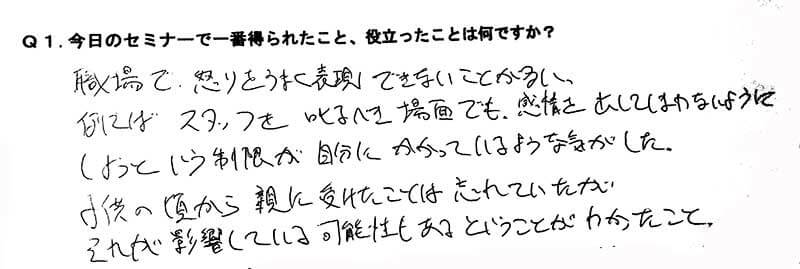 Q1.今日のセミナーで一番得られたこと、役立ったことは何ですか？
職場で、怒りをうまく表現できないことが多い、
例えば スタッフを 叱るべき 場面でも、感情を 出してしまわないように
しようと いう 制限が 自分に かかっているような気がした。
子供の頃から 親に 受けたことは 忘れていたが
それが 影響している 可能性も あるということが わかったこと。